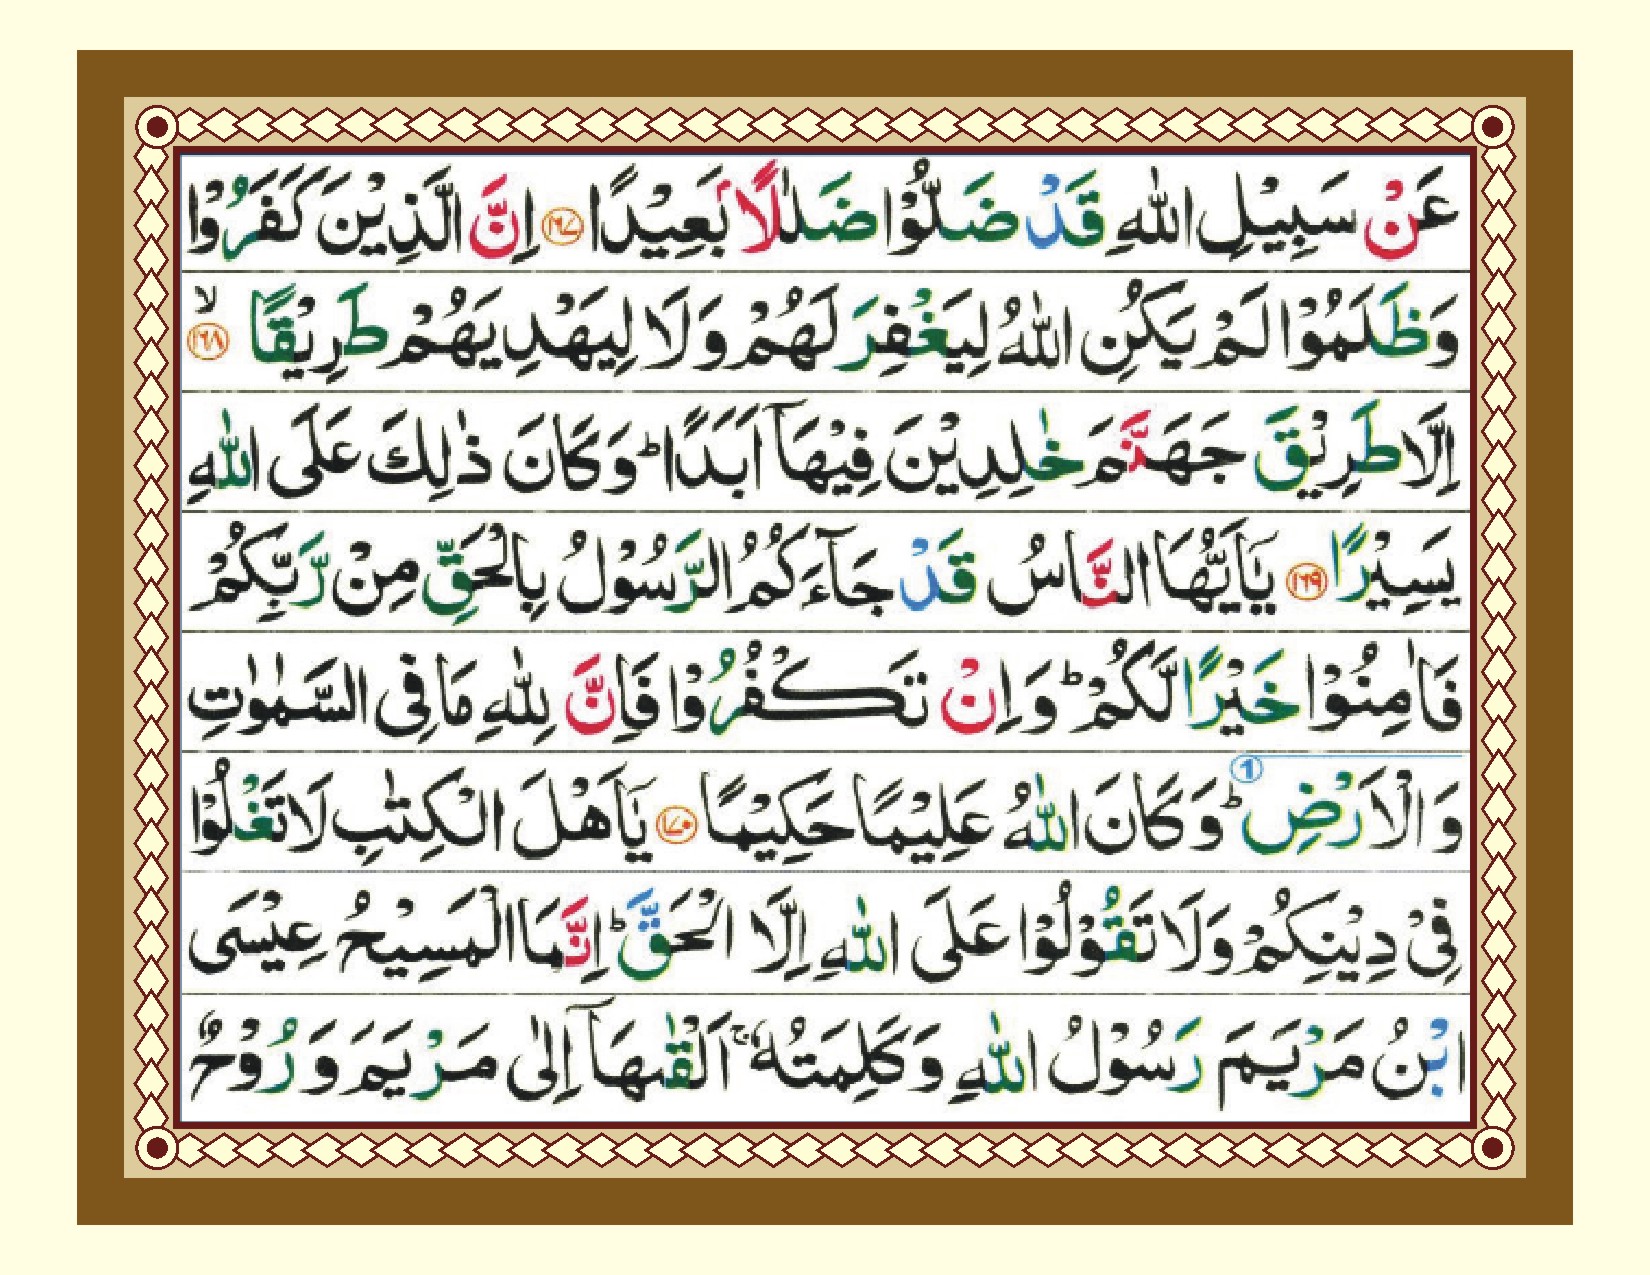 عَنْ سَبِيْلِ اللّٰهِ قَدْ ضَلُّوْا ضَلٰلًاۢ بَعِيْدًا ﴿۱۶۷﴾ اِنَّ الَّذِيْنَ كَفَرُوْا
وَظَلَمُوْا لَمْ يَكُنِ اللّٰهُ لِيَغْفِرَ لَهُمْ وَلَا لِيَهْدِيَهُمْ طَرِيْقًا ۙ ﴿۱۶۸﴾
اِلَّا طَرِيْقَ جَهَنَّمَ خٰلِدِيْنَ فِيْهَاۤ اَبَدًا ؕ وَكَانَ ذٰلِكَ عَلَى اللّٰهِ
يَسِيْرًا ﴿۱۶۹﴾ يٰۤاَيُّهَا النَّاسُ قَدْ جَآءَكُمُ الرَّسُوْلُ بِالْحَقِّ مِنْ رَّبِّكُمْ
فَاٰمِنُوْا خَيْرًا لَّكُمْ ؕ وَاِنْ تَكْفُرُوْا فَاِنَّ لِلّٰهِ مَا فِى السَّمٰوٰتِ
وَالْاَرْضِ ① ؕ وَكَانَ اللّٰهُ عَلِيْمًا حَكِيْمًا ﴿۱۷۰﴾ يٰۤاَهْلَ الْكِتٰبِ لَا تَغْلُوْا
فِىْ دِيْنِكُمْ وَلَا تَقُوْلُوْا عَلَى اللّٰهِ اِلَّا الْحَقَّ ؕ اِنَّمَا الْمَسِيْحُ عِيْسَى
ابْنُ مَرْيَمَ رَسُوْلُ اللّٰهِ وَكَلِمَتُهٗ ۚ اَلْقٰىهَاۤ اِلٰى مَرْيَمَ وَرُوْحٌ